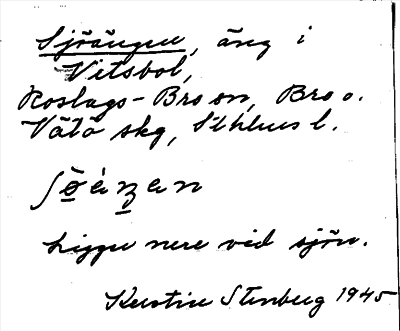 Sjöängen, äng i
Vitsbol,
Roslags-Bro sn, Bro o.
Vätö skg, Sthlms l.
ʃö̱̀áŋa̱n
Ligger nere vid sjön.
Kerstin Stenberg 1945